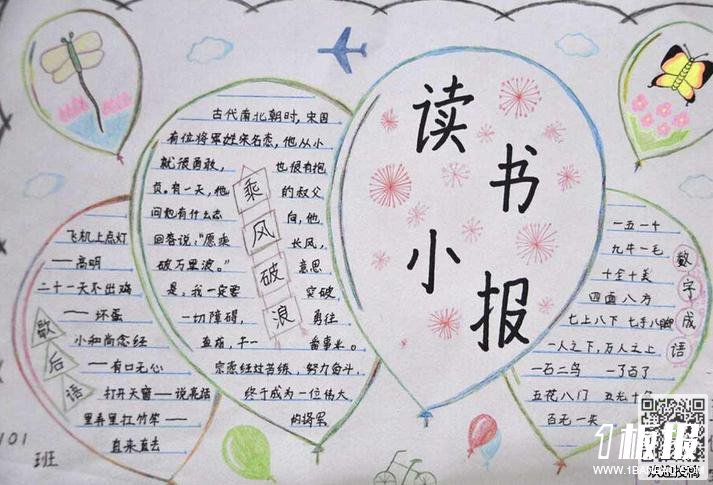 读书小报
古代南北朝时，宋国
有位将军姓宗名悫，他从小
就很勇敢，也很有抱
负，有一天，他的叔父
问他有什么志向，他
回答说，“愿乘长风，
破万里浪。”意思
是：我一定要突破
一切障碍，勇往
直前，干一番事业。
宗悫经过苦练，努力奋斗，
终于成为一位伟大
的将军
乘风破浪
飞机上点灯
——高明
二十一天不出鸡
——坏蛋
小和尚念经
——有口无心
打开天窗——说亮话
里弄里扛竹竿——
直来直去
歇后语
一五一十
九牛一毛
十全十美
四面八方
七上八下 七手八脚
一人之下，万人之上
一石二鸟 一了百了
五花八门
百无一失
数字成语
101
班
1板报
WWW.1BANBAO.COM